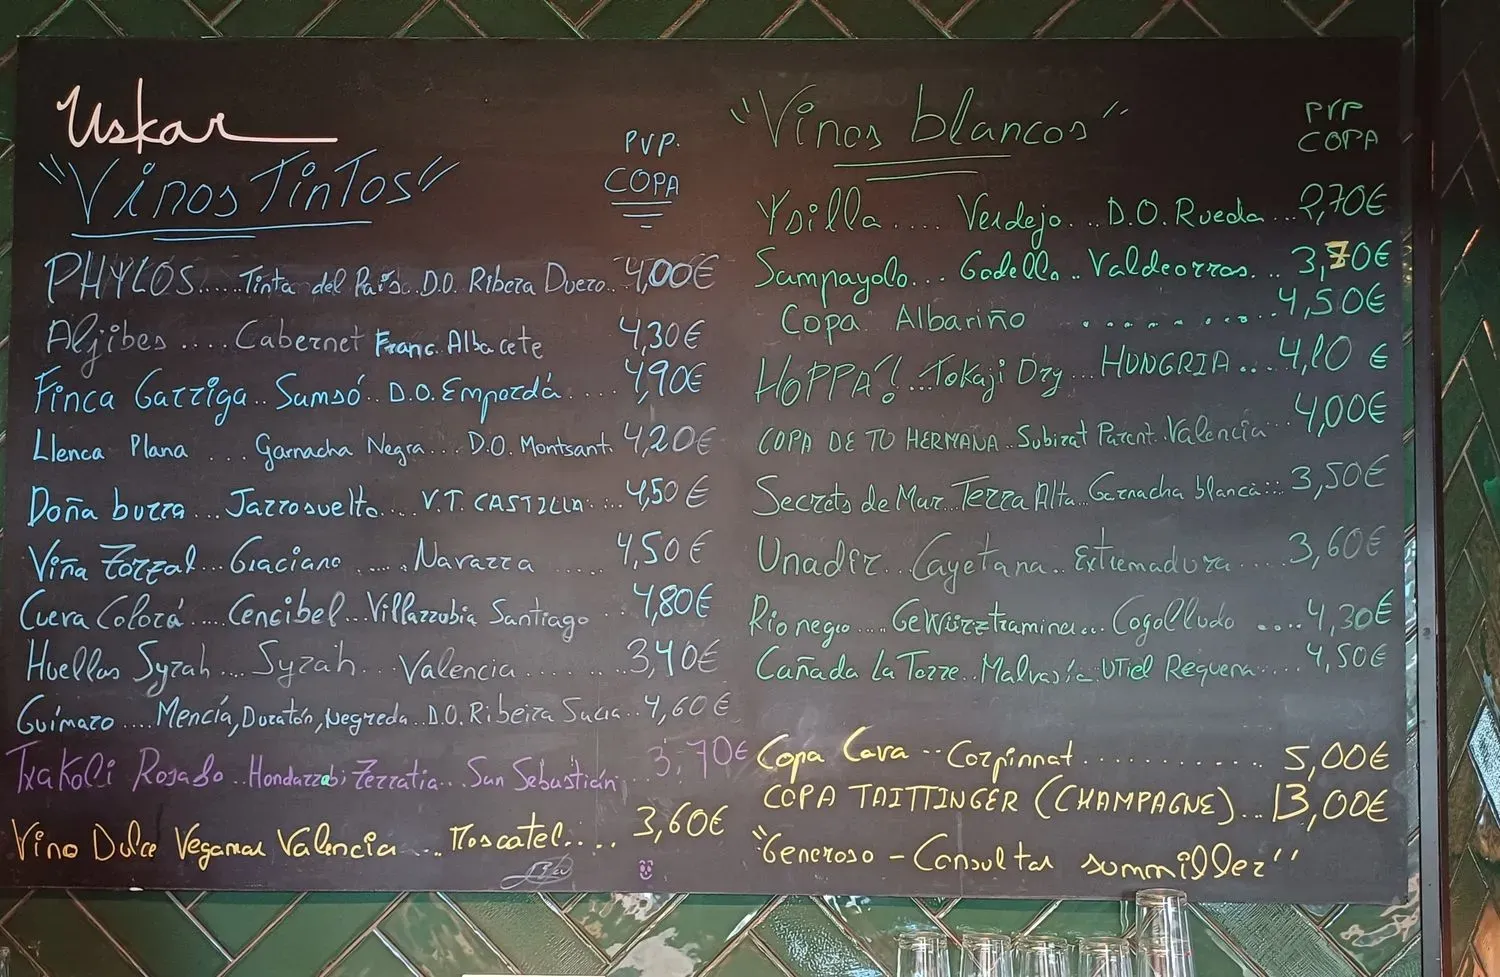 Uskar
"Vinos Tintos"
PVP.
COPA
PHYLOS..... Tinta del País.. D.O. Ribera Duero.. 4,00€
Aljibes ..... Cabernet Franc. Albacete 4,30€
Finca Garriga.. Sumsó.. D.O. Empordá..... 4,90€
Llenca Plana ... Garnacha Negra... D.O. Montsant. 4,20€
Doña burra... Jarrosuelto..... V.T. CASTILLA..... 4,50€
Viña Zorzal... Graciano ..... Navarra ..... 4,50€
Cueva Colorá..... Cencibel... Villarrubia Santiago 4,80€
Huellas Syrah.... Syrah.... Valencia ........ 3,40€
Guímaro .... Mencía, Duratón, Negreda.. D.O. Ribeira Sacra.. 4,60€
Txakoli Rosado.. Hondarrabi Zerratia... San Sebastián 3,70€
Vino Dulce Vegamar Valencia ... Moscatel.... 3,60€
"Vinos blancos"
PVP
COPA
Ysilla.... Verdejo... D.O. Rueda...2,70€
Sampayolo... Godello.. Valdeorras... 3,80€
Copa Albariño .......... 4,50€
HOPPA!... Tokaji Dry... HUNGRIA... 4,10 €
COPA DE TU HERMANA.. Subirat Parent. Valencia 4,00€
Secrets de Mar.. Terra Alta... Garnacha blanca... 3,50€
Unadir... Cayetana.. Extremadura.... 3,60€
Rio negro .... Gewürztraminer... Cogolludo ....4,30€
Cañada La Torre.. Malvasía. Utiel Requena.... 4,50€
Copa Cava .. Corpinnat ............ 5,00€
COPA TAITTINGER (CHAMPAGNE)... 13,00€
"Generoso - Consultar summiller"